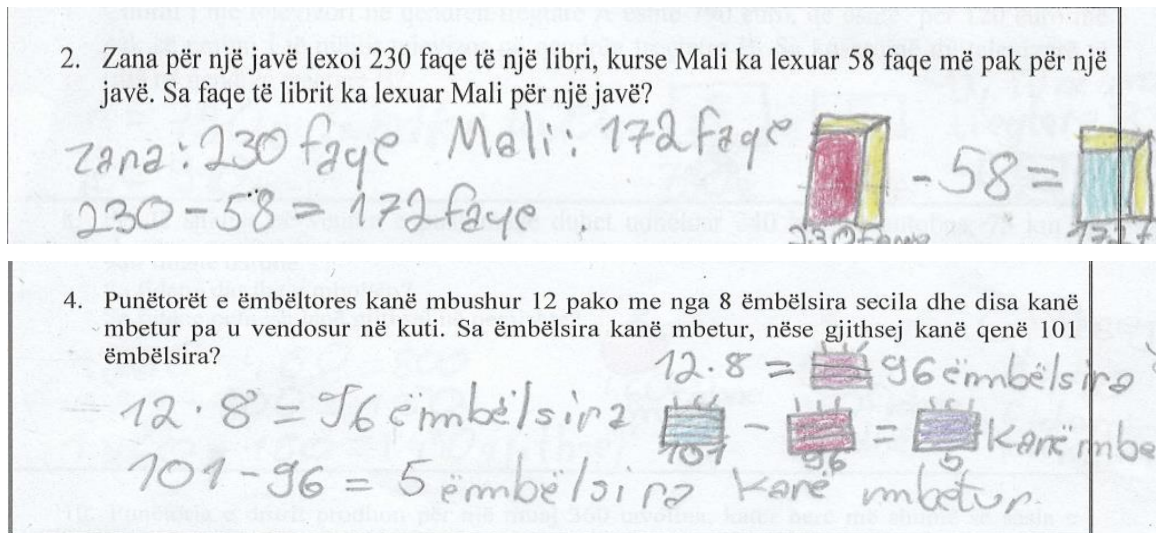 2. Zana për një javë lexoi 230 faqe të një libri, kurse Mali ka lexuar 58 faqe më pak për një
javë. Sa faqe të librit ka lexuar Mali për një javë?
Zana: 230 faqe Mali: 172 faqe
- 58 =
230 - 58 = 172 faqe
4. Punëtorët e ëmbëltores kanë mbushur 12 pako me nga 8 ëmbëlsira secila dhe disa kanë
mbetur pa u vendosur në kuti. Sa ëmbëlsira kanë mbetur, nëse gjithsej kanë qenë 101
ëmbëlsira?
12 · 8 = 96 ëmbëlsira
12 · 8 = 96 ëmbëlsira
- = Kanë mbe
101 96 5
101 - 96 = 5 ëmbëlsira Kanë mbetur.